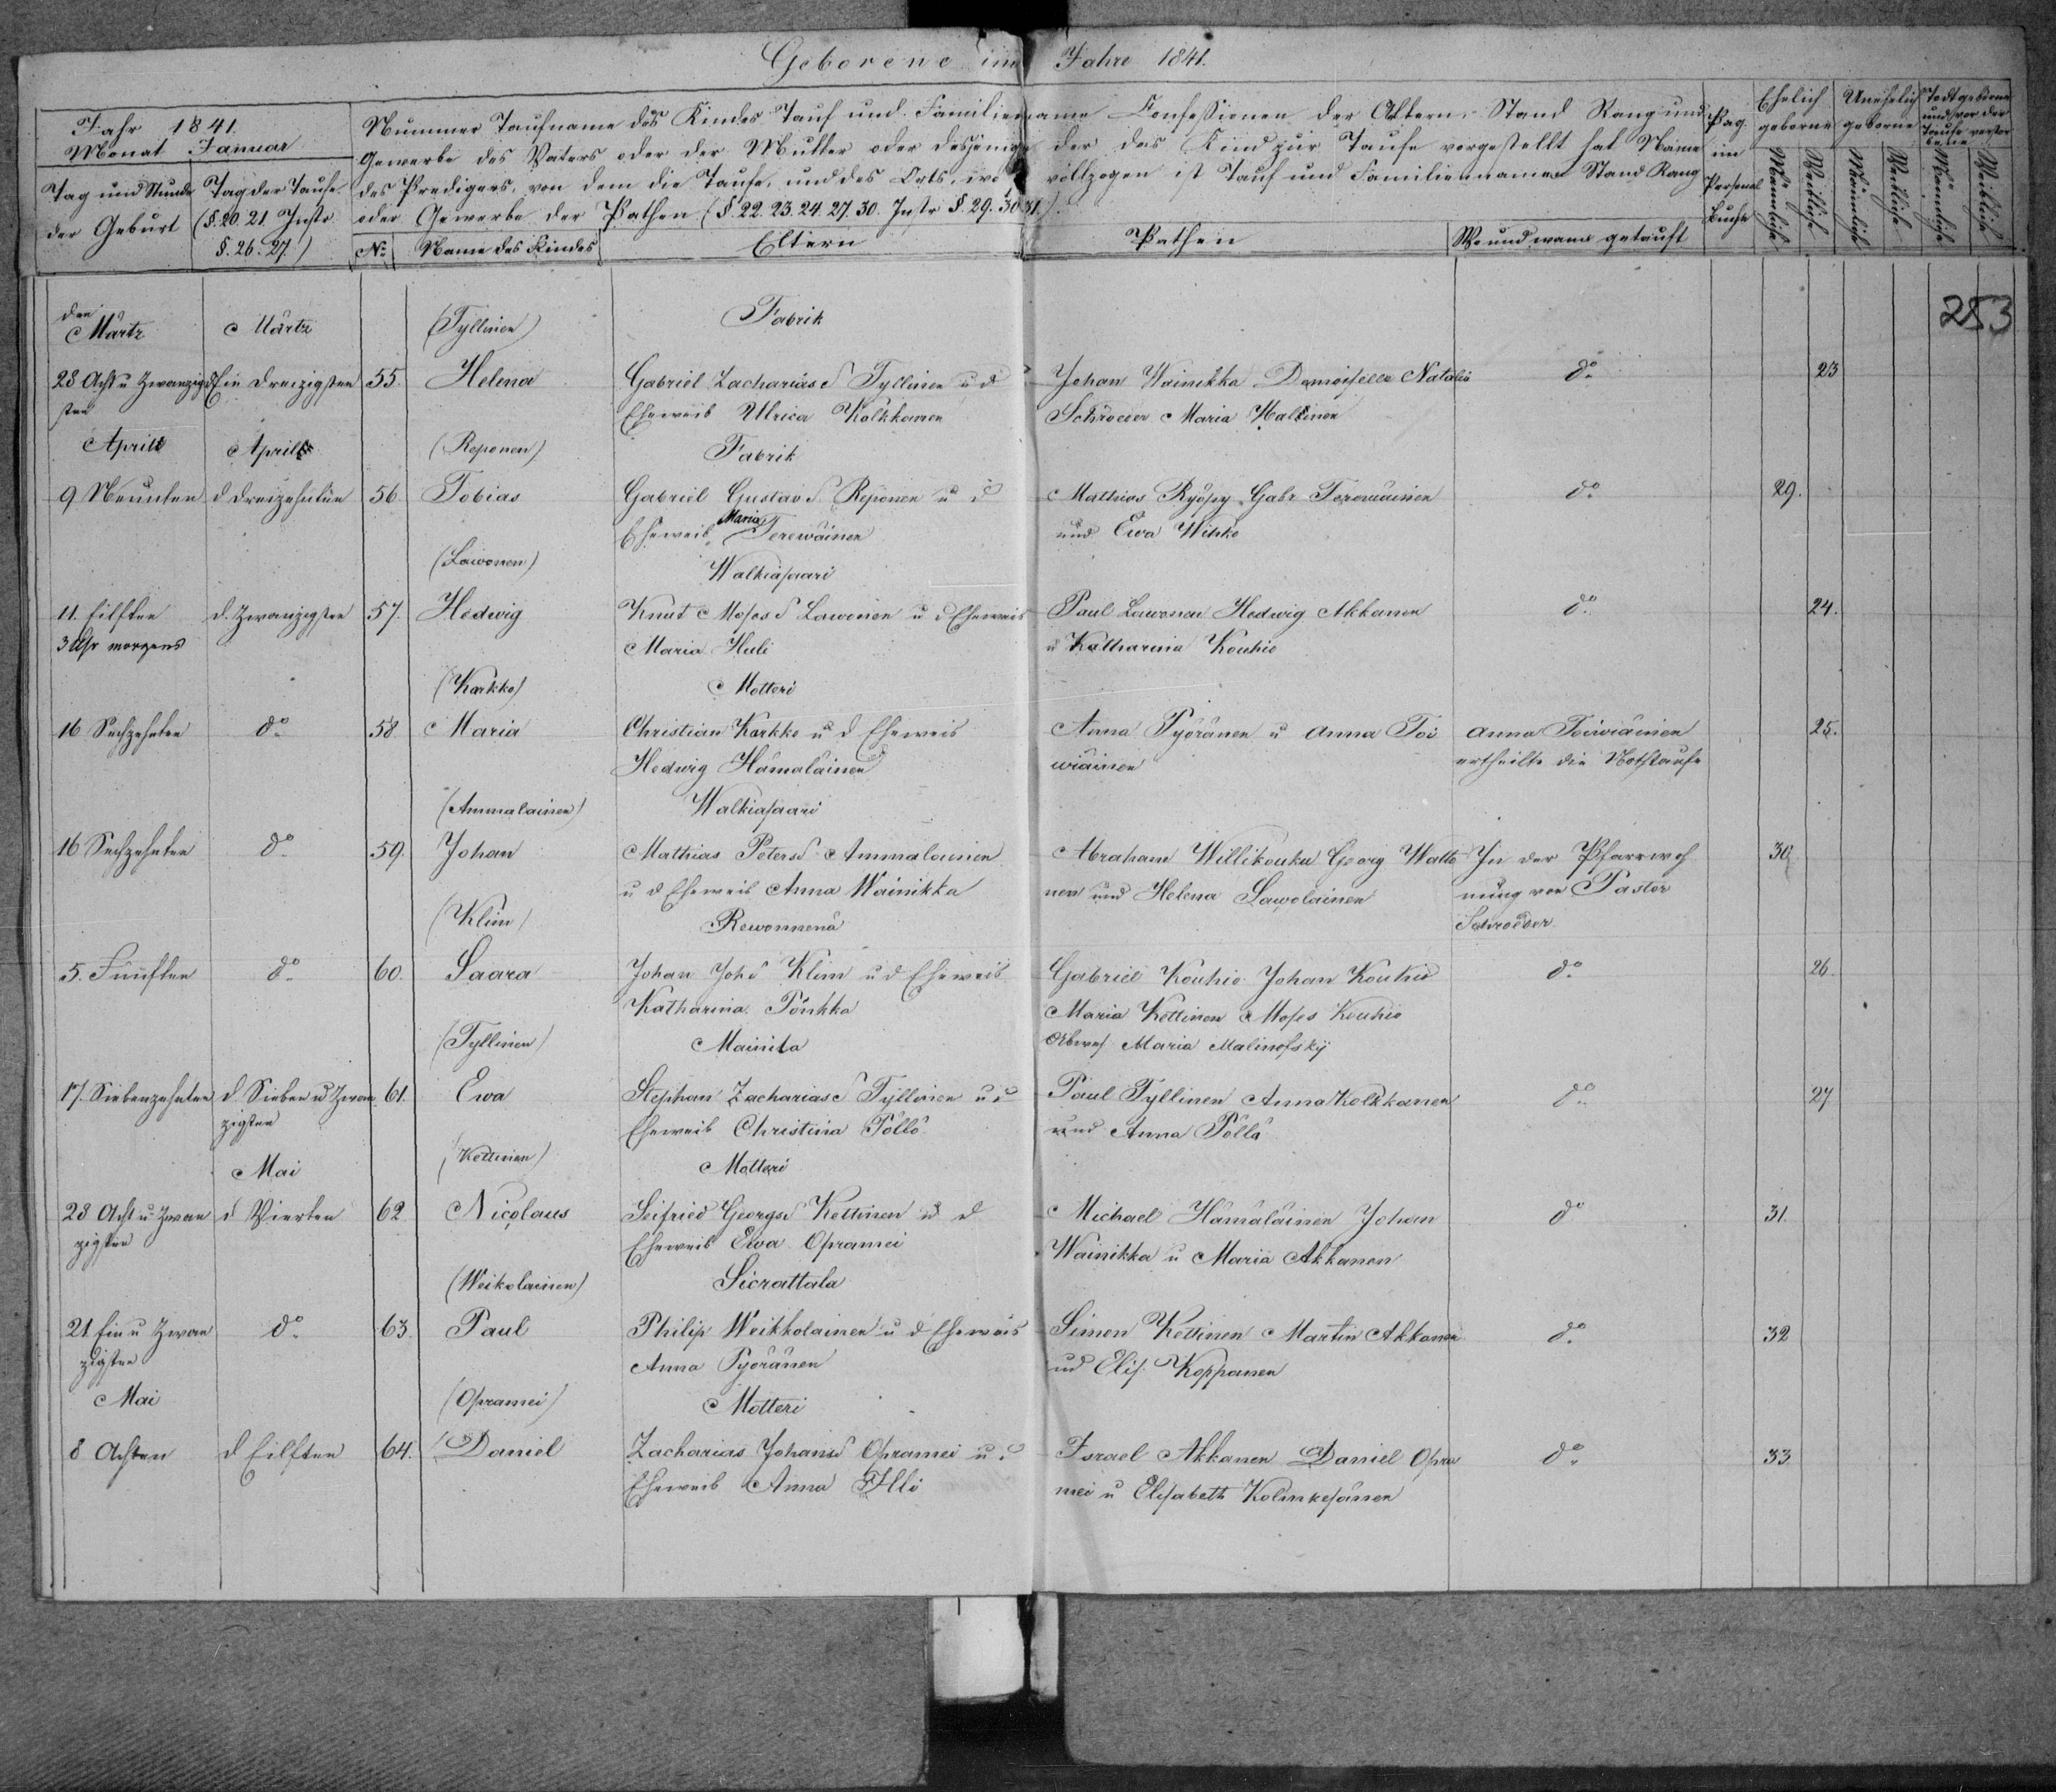 Geborene im Jahre 1841.
Jahr 1841.
Monat Januar
Nummer Taufname des Kindes Tauf und Familienname Confessionen der Aeltern, Stand Rang und
Gewerbe des Vaters oder der Mutter oder desjenigen der das Kind zur Taufe vorgestellt hat Name
des Predigers, von dem die Taufe, und des Orts, wo vollzogen ist Tauf und Familiennamen Stand Rang
oder Gewerbe der Pathen (§. 22. 23. 24. 27. 30. Instr §. 29. 30 31.)
Tag und Stunde
der Geburt
Tag der Taufe
(§. 20. 21 Instr.
§. 26. 27.)
No Name des Kindes
Eltern
Pathen
Wo und wann getauft
Pag.
im
Personal
Buche
Ehelich
geborne
Unehelich
geborne
Todtgeborne
und vor der
Taufe verstor
bene
Männliche
Weibliche
Männliche
Weibliche
Männliche
Weibliche
253
den
Märtz Märtz (Tyllinen) Fabrik
28 Acht u Zwanzig Ein dreizigsten 55. Helena Gabriel Zacharias S Tyllinen u d Johan Wainikka Demoiselle Natalie do 23
sten Eheweib Ulrica Kolkkanen Schroeder Maria Hallinen
Aprill Aprill (Reponen) Fabrik
9 Neunten d dreizehnten 56 Tobias Gabriel Gustav S Reponen u d Mathias Ryöpy Gabr Terewäinen do 29.
Eheweib Maria Terewäinen und Ewa Wihko
(Lawonen) Walkiasaari
11. Eilften d. Zwanzigsten 57. Hedwig Knut Moses S Lawonen u d Eheweib Paul Lawonen Hedwig Akkanen do 24.
3 Uhr morgens Maria Huli u Katharina Kouhio
(Karkko) Motteri
16 Sechzehnten do 58 Maria Christian Karkko u d Eheweib Anna Pyöränen u Anna Toi Anna Toiwiäinen 25.
Hedwig Hämaläinen wiäinen ertheilte die Nothtaufe
(Ammalainen) Walkiasaari
16 Sechzehnten do 59. Johan Mathias Peters S Ammalainen Abraham Willikouku Georg Walto In der Pfarrwoh 30
u d Eheweib Anna Wainikka nen und Helena Sawolainen nung von Pastor
(Klim) Rewonnenä Schroeder
5. Fünften do 60. Saara Johan Joh S Klim u d Eheweib Gabriel Kouhio Johan Kouhio do 26.
Katharina Pönkkä Maria Kettinen Moses Kouhio
(Tyllinen) Mainila Maria Malinofsky
17. Siebenzehnten d Sieben u Zwan 61. Ewa Stephan Zacharias S Tyllinen u d Paul Tyllinen Anna Kolkkanen do 27
zigsten Eheweib Christina Pöllö und Anna Pöllä
Mai (Kettinen) Motteri
28 Acht u Zwan d Vierten 62. Nicolaus Seifried Georgs S Kettinen u d Michael Hämäläinen Johan do 31.
zigsten Eheweib Ewa Opramei Wainikka u Maria Akkanen
(Weikolainen) Sicrattala
21 Ein u Zwan do 63. Paul Philip Weikkolainen u d Eheweib Simon Kettinen Martin Akkanen do 32
zigsten Anna Pyöränen und Elis. Koppanen
Mai (Opramei) Motteri
8 Achten d Eilften 64. Daniel Zacharias Johans S Opramei u d Israel Akkanen Daniel Opra do 33
Eheweib Anna Illi mei u Elisabeth Kolmkesänen